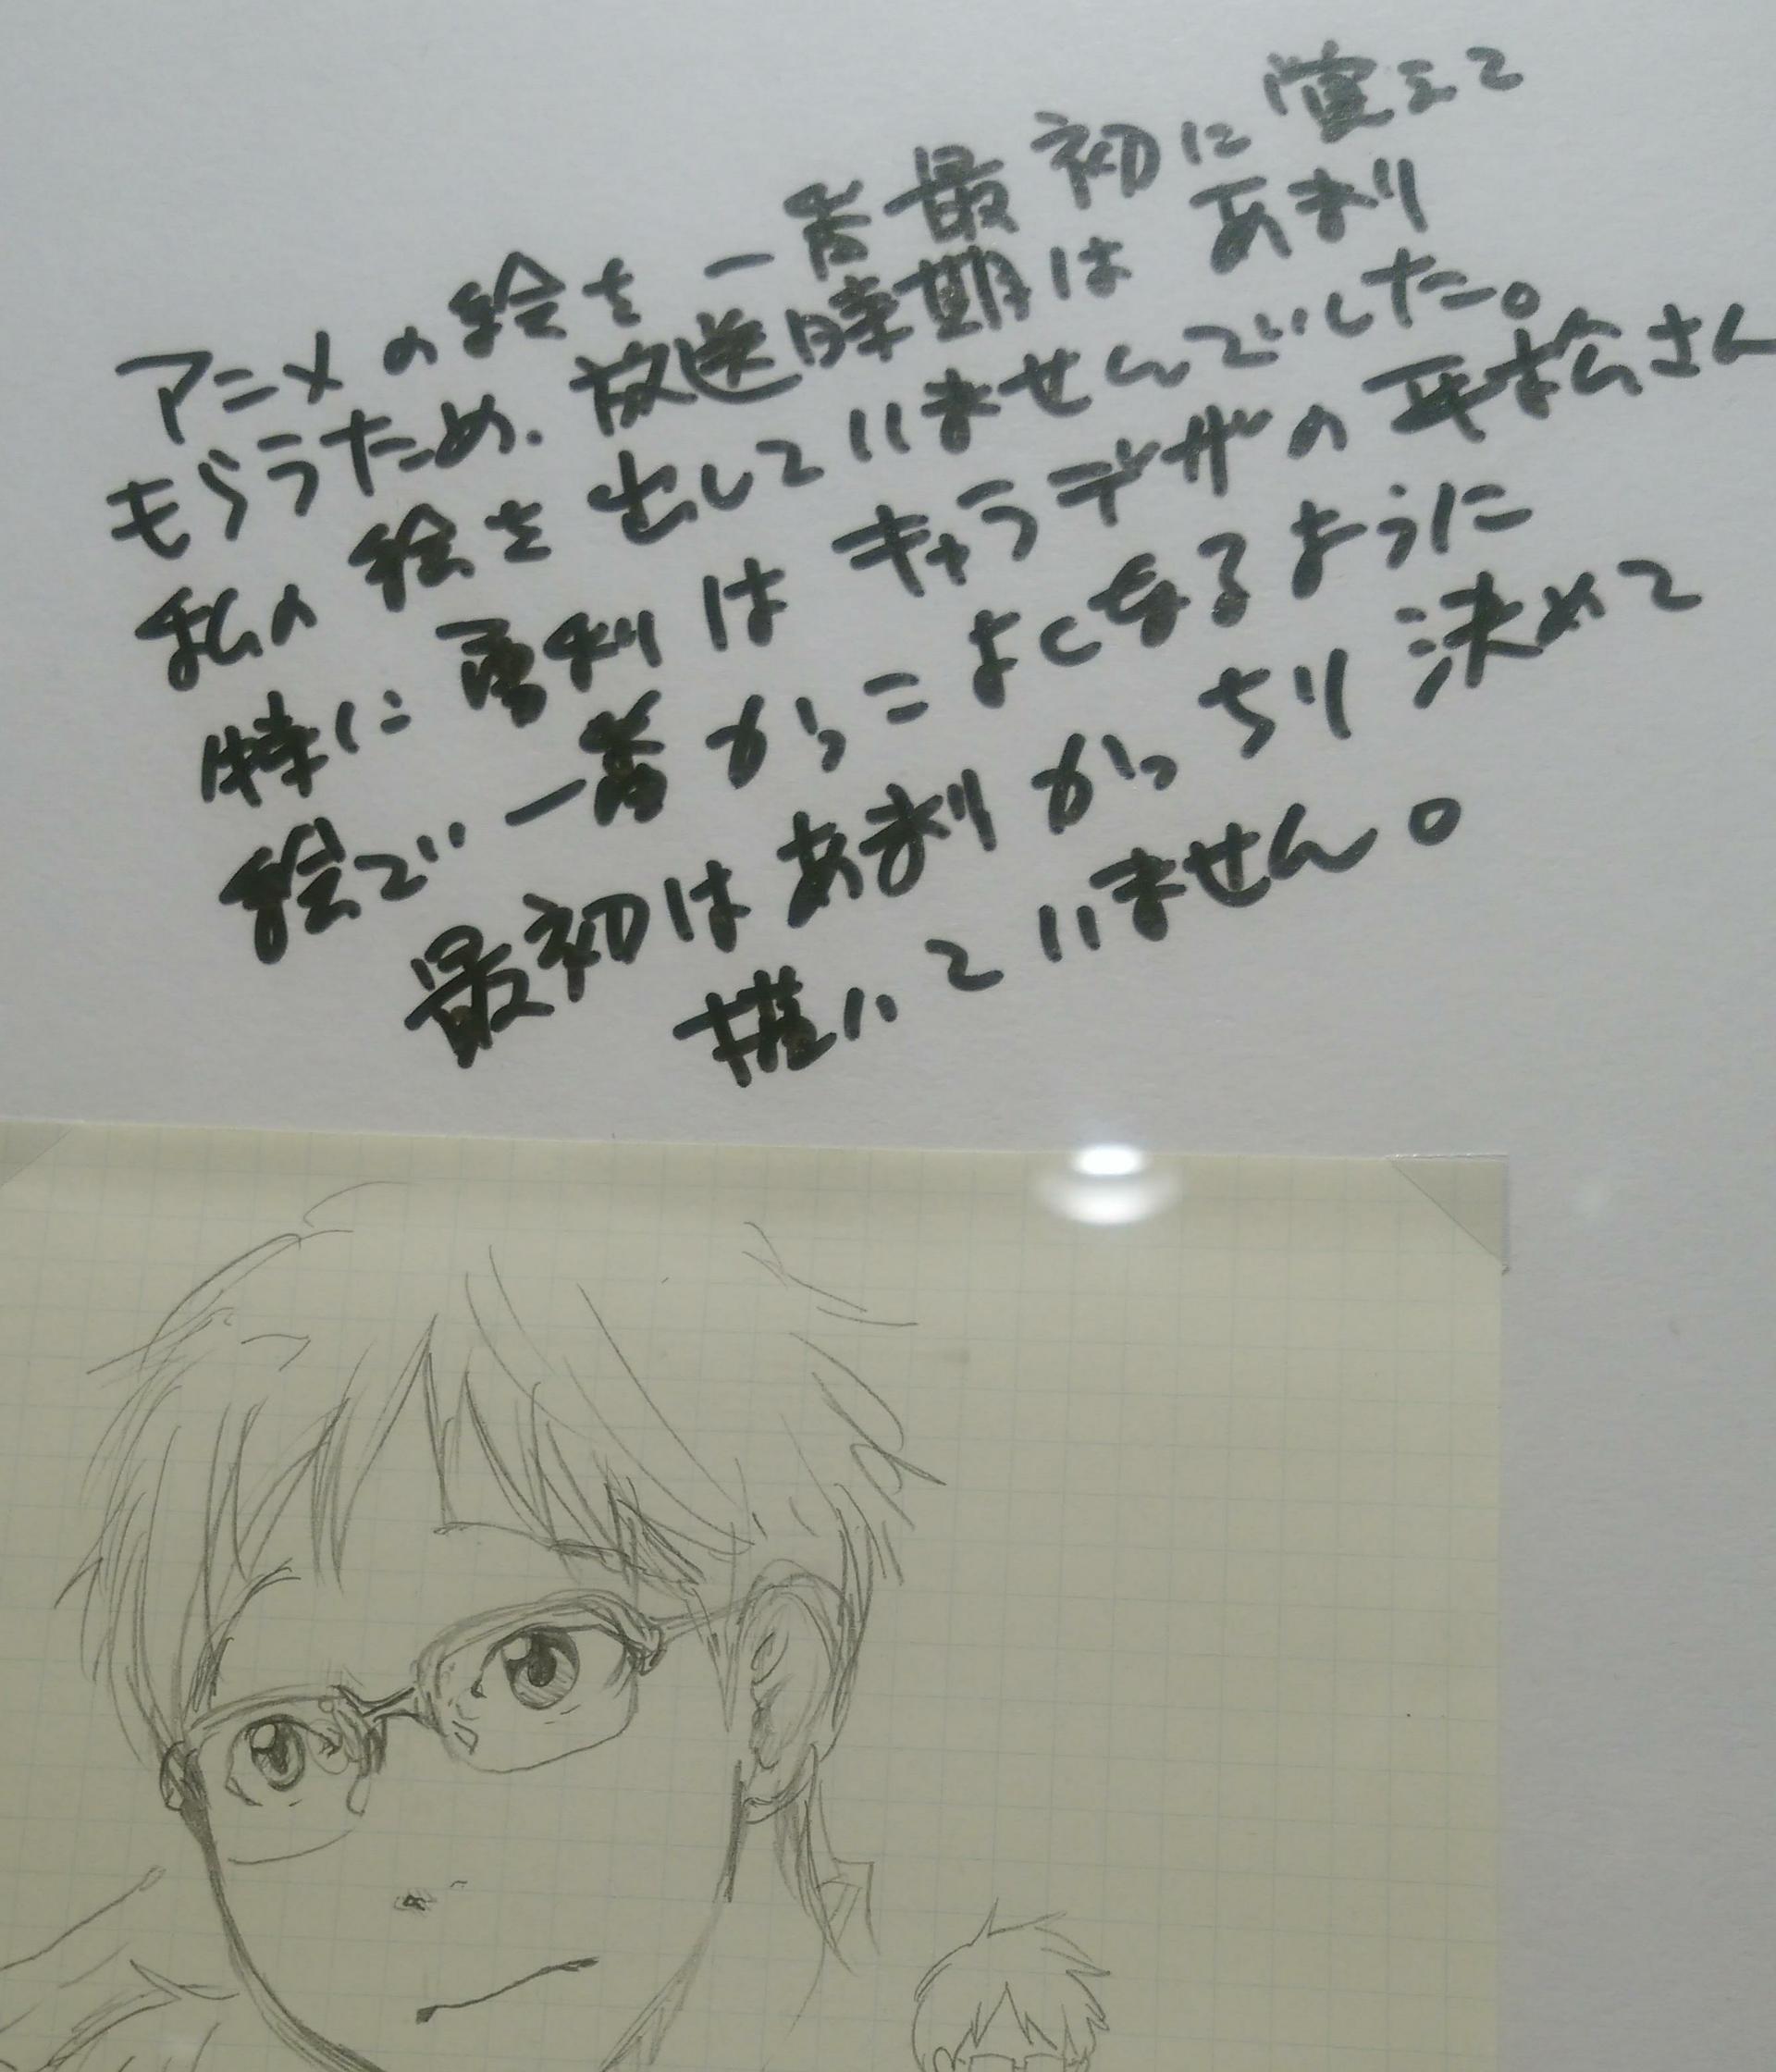 アニメの絵を一番最初に覚えて
もらうため、放送時期はあまり
私の絵を出していませんでした。
特に勇利はキャラデザの平松さん
絵で一番かっこよくなるように
最初はあまりかっちり決めて
描いていません。